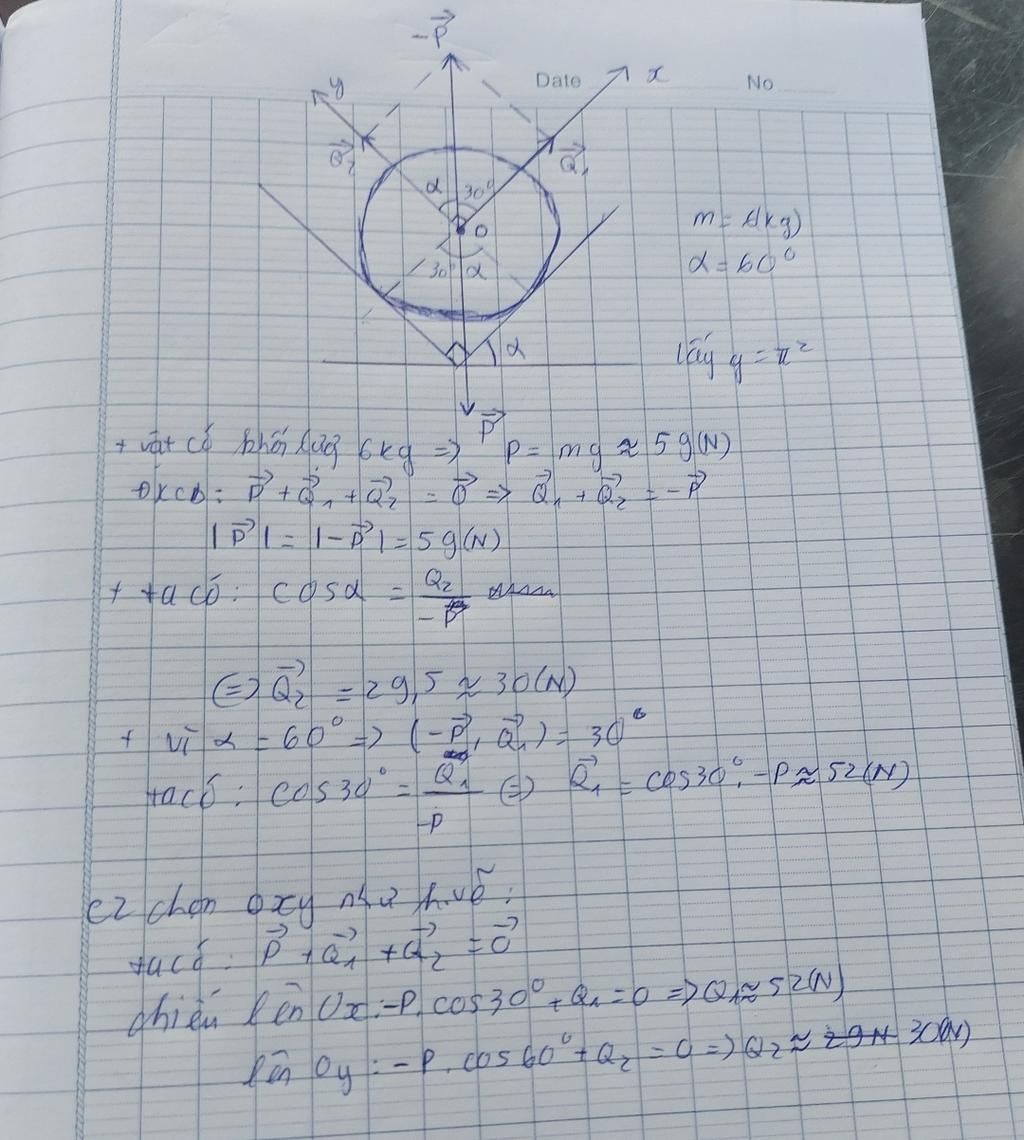 -P⃗
Date No
y x
Q⃗₂ Q⃗₁
α 30°
O
30° α
m = 6(kg)
α = 60°
α
lấy g = π²
P⃗
+ vật có khối lượng 6kg => P = mg ≈ 59(N)
ĐKCB: P⃗ + Q⃗₁ + Q⃗₂ = 0⃗ => Q⃗₁ + Q⃗₂ = -P⃗
|P⃗| = |-P⃗| = 59(N)
+ ta có: cosα = Q₂/-P
<=> Q⃗₂ = 29,5 ≈ 30(N)
+ vì α = 60° => (-P⃗, Q⃗₁) = 30°
ta có: cos30° = Q₁/-P <=> Q⃗₁ = cos30°. -P ≈ 52(N)
c2 chọn oxy như h.vẽ:
ta có: P⃗ + Q⃗₁ + Q⃗₂ = 0⃗
chiếu lên Ox: -P.cos30° + Q₁ = 0 => Q₁ ≈ 52(N)
lên Oy: -P.cos60° + Q₂ = 0 => Q₂ ≈ 29N 30(N)